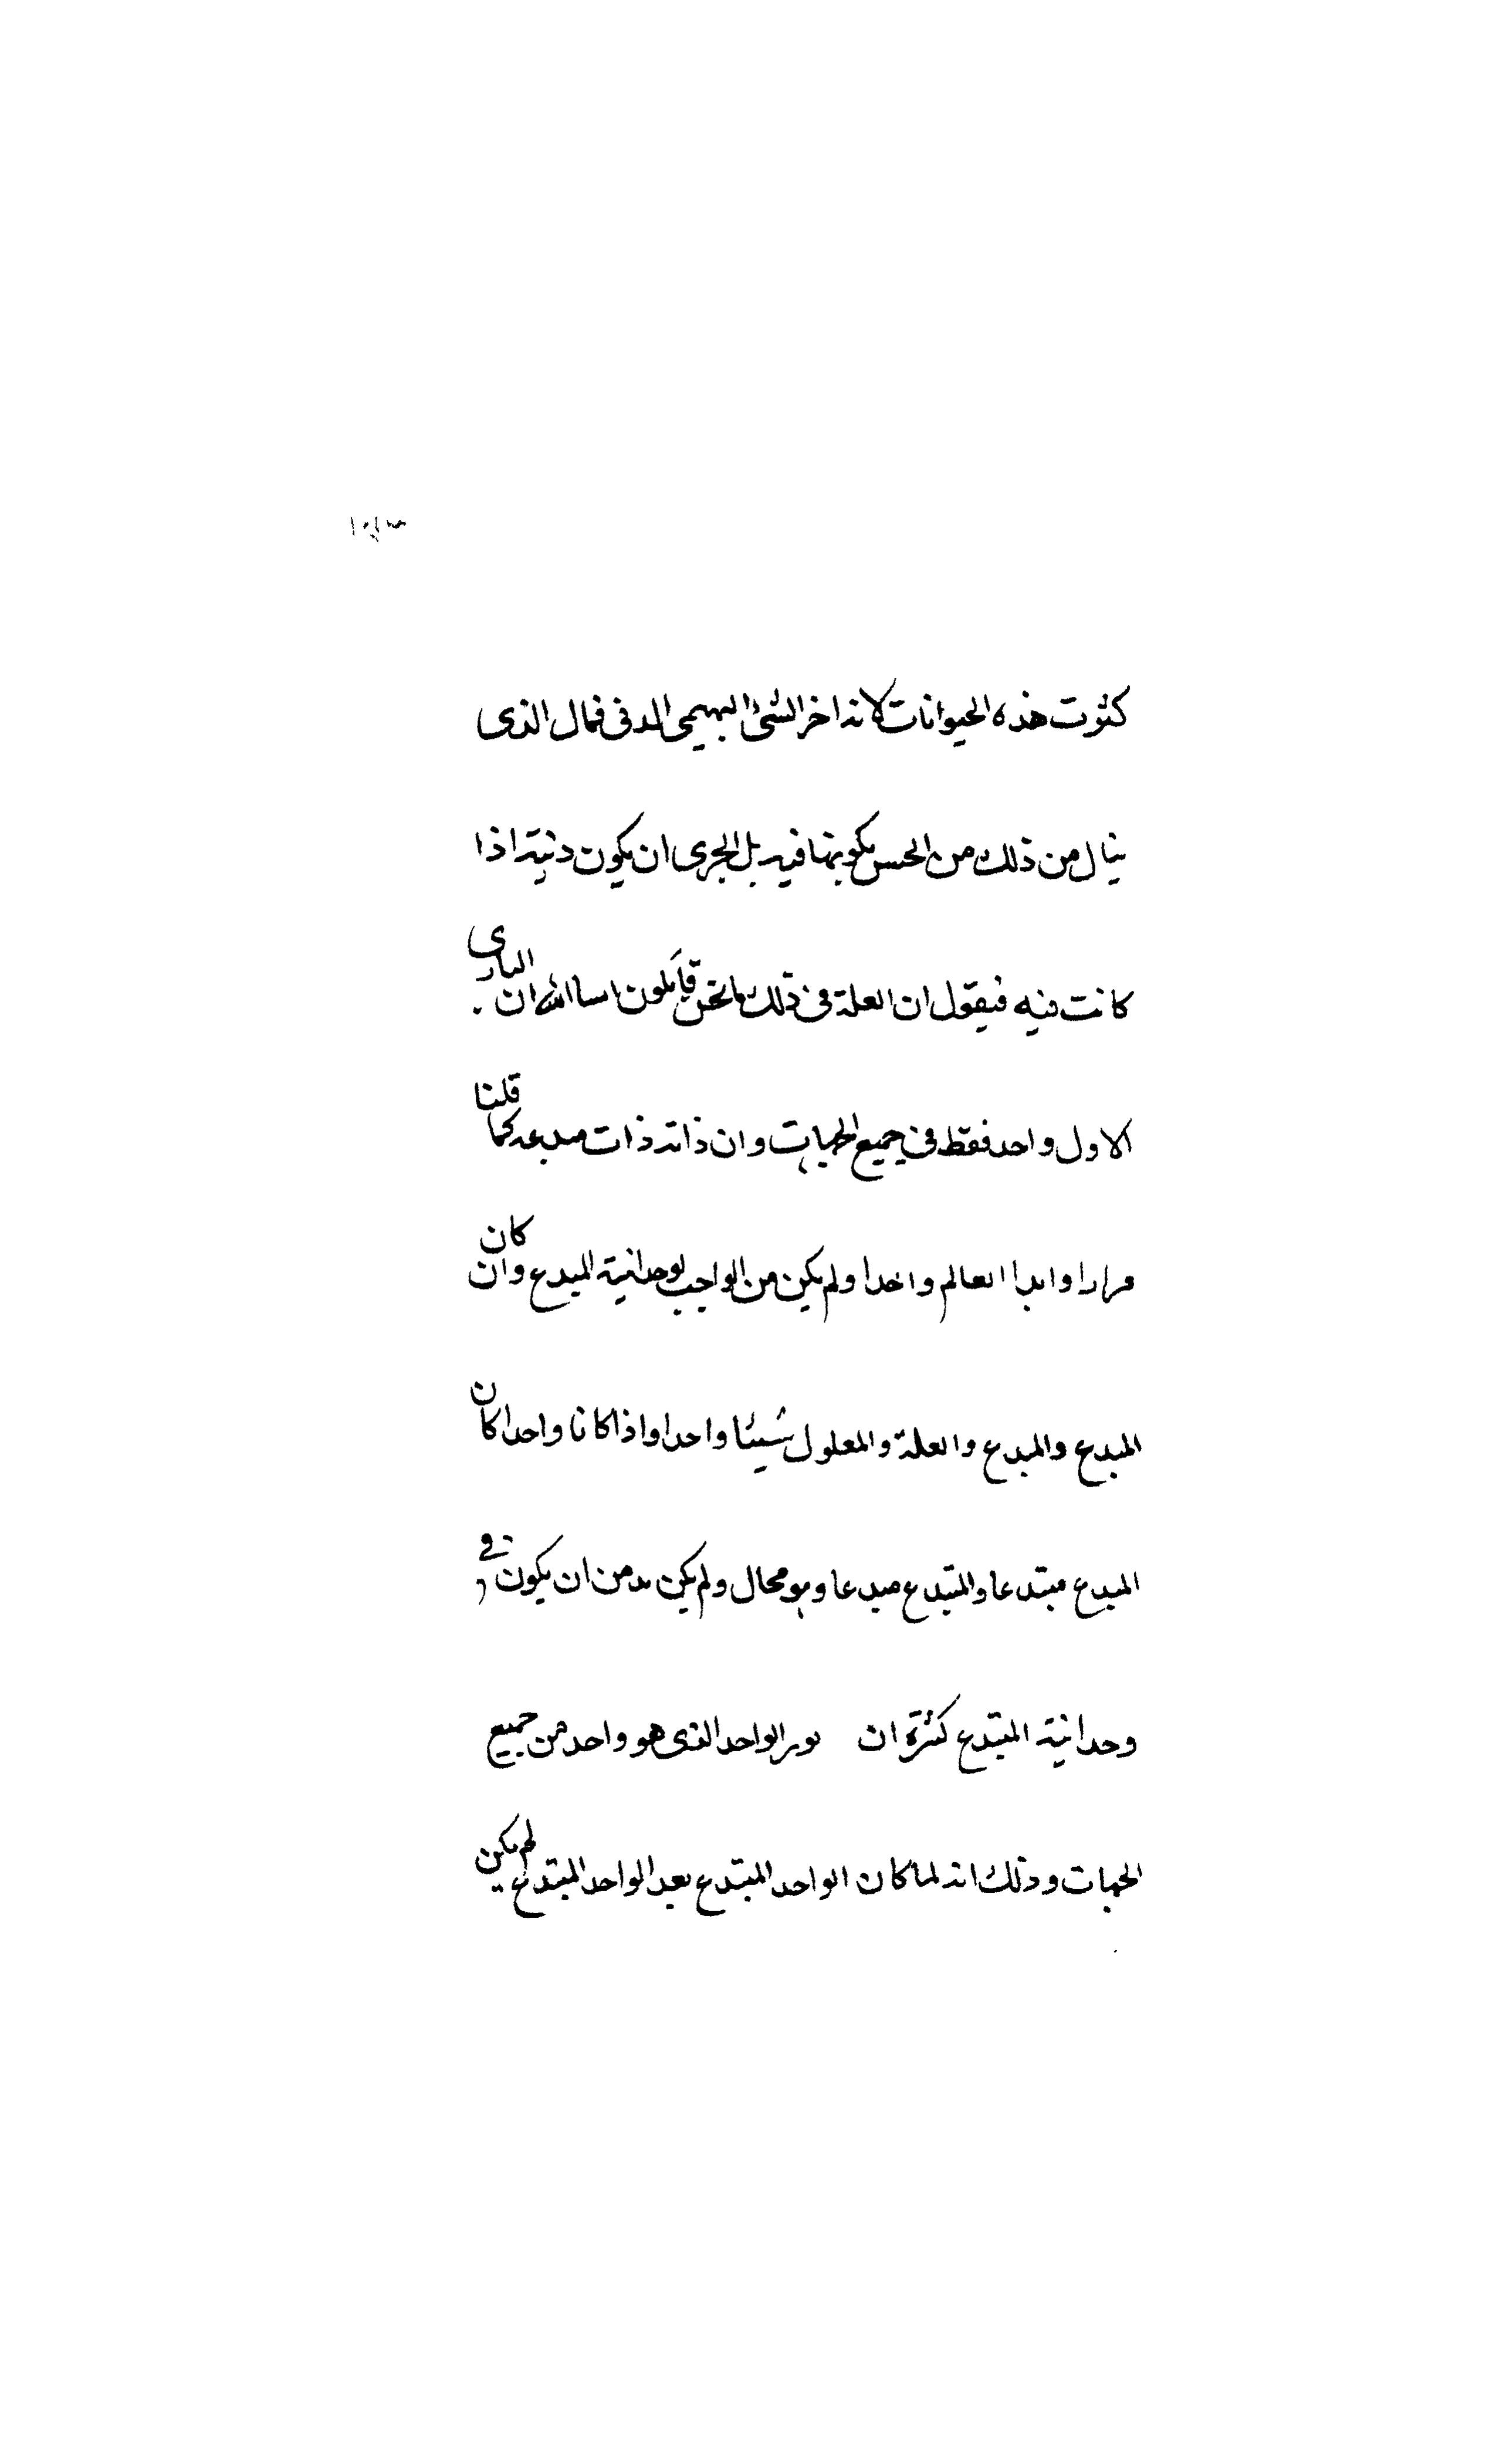 كثرت هذه الحيوانات لانه اخر الشئ البهيمى الدنى فمال الذى
ينال من ذلك من الحس بكونها فيه بل الجرى ان يكون دنية اذا
كانت فيه فيقول ان العلة فى ذلك ما نحن قائلون انشا الله ان البارى
الاول واحد فقط فى جميع الجهات وان ذاته ذات مبدعه كما قلنا
مرارا وابدا العالم واحدا ولم يكن من الواجب لوحدانية المبدع وان كان
المبدع والمبدع والعلة والمعلول شيئا واحدا واذا كانا واحدا كان
المبدع مبتدعا والمبتدع مبدعا وهو محال ولم يكن بد من ان يكون فى
وحدانية المبتدع كثرة ان الواحد الذى هو واحد من جميع
الجهات وذلك انه لما كان الواحد المبتدع بعد الواحد المبتدع لم يكن